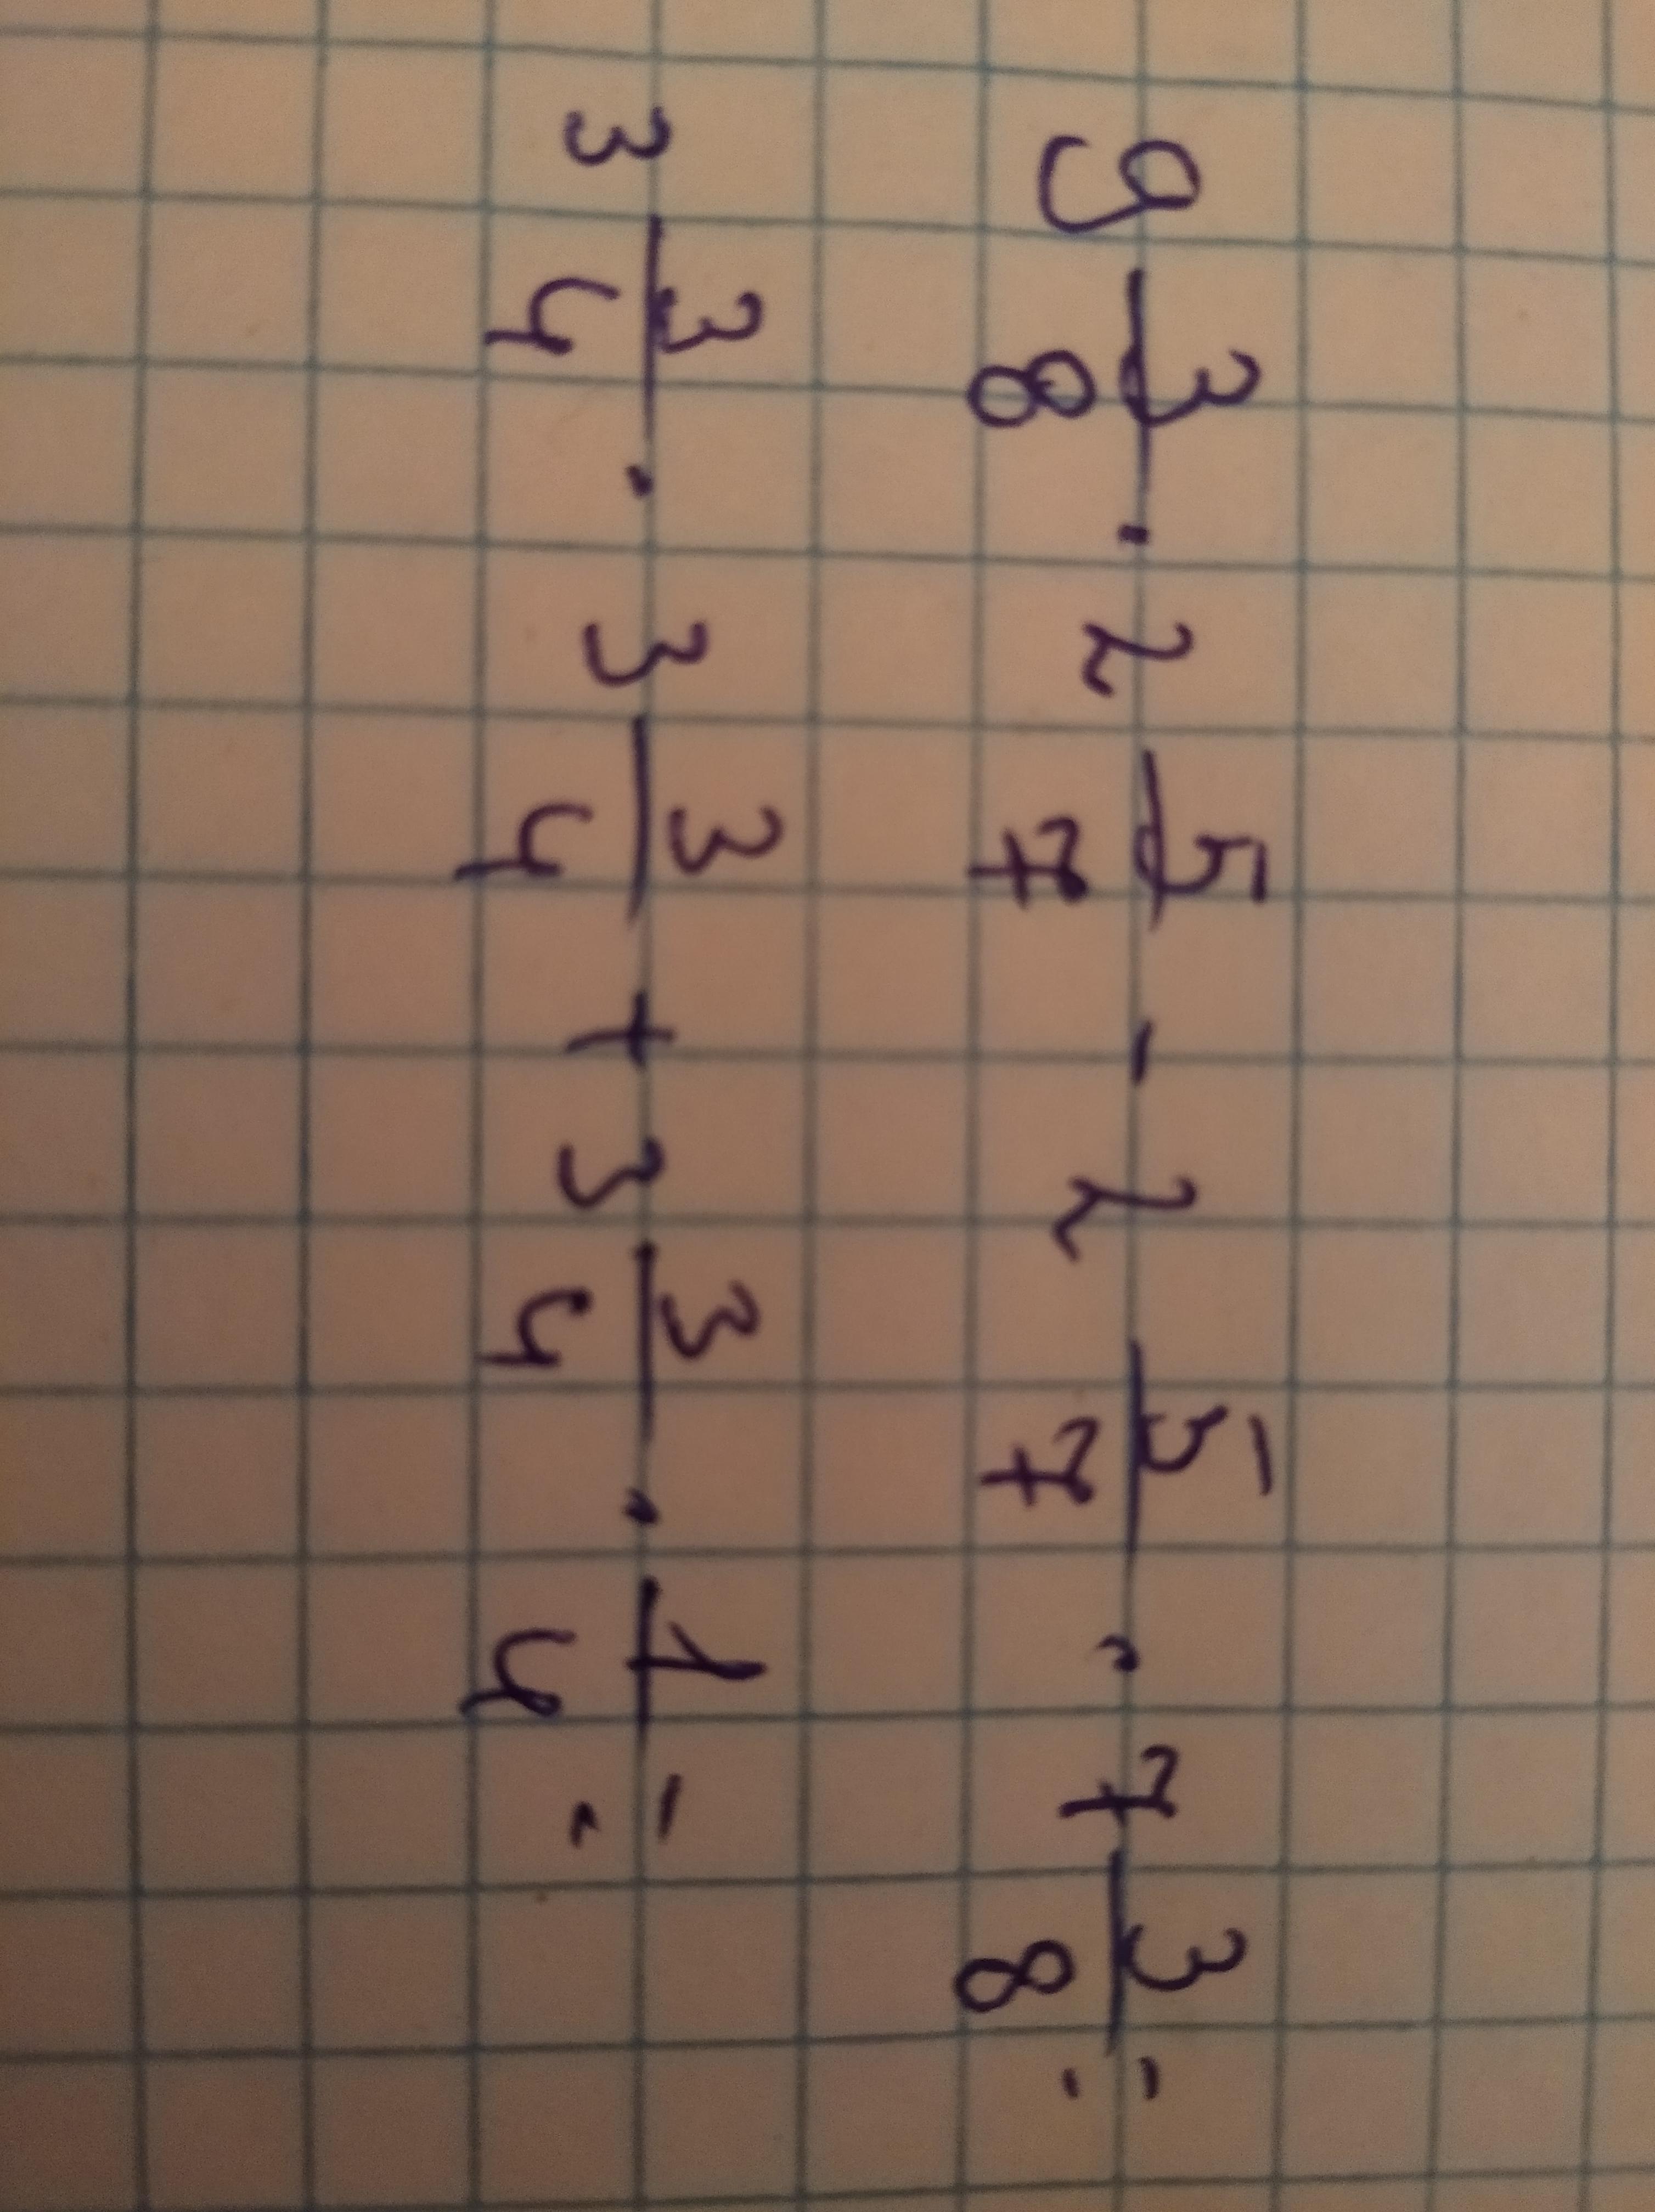 9 3/8 · 2 5/7 - 2 5/7 · 7 3/8 =
3 3/4 · 3 3/4 + 3 3/4 · 1/4 =